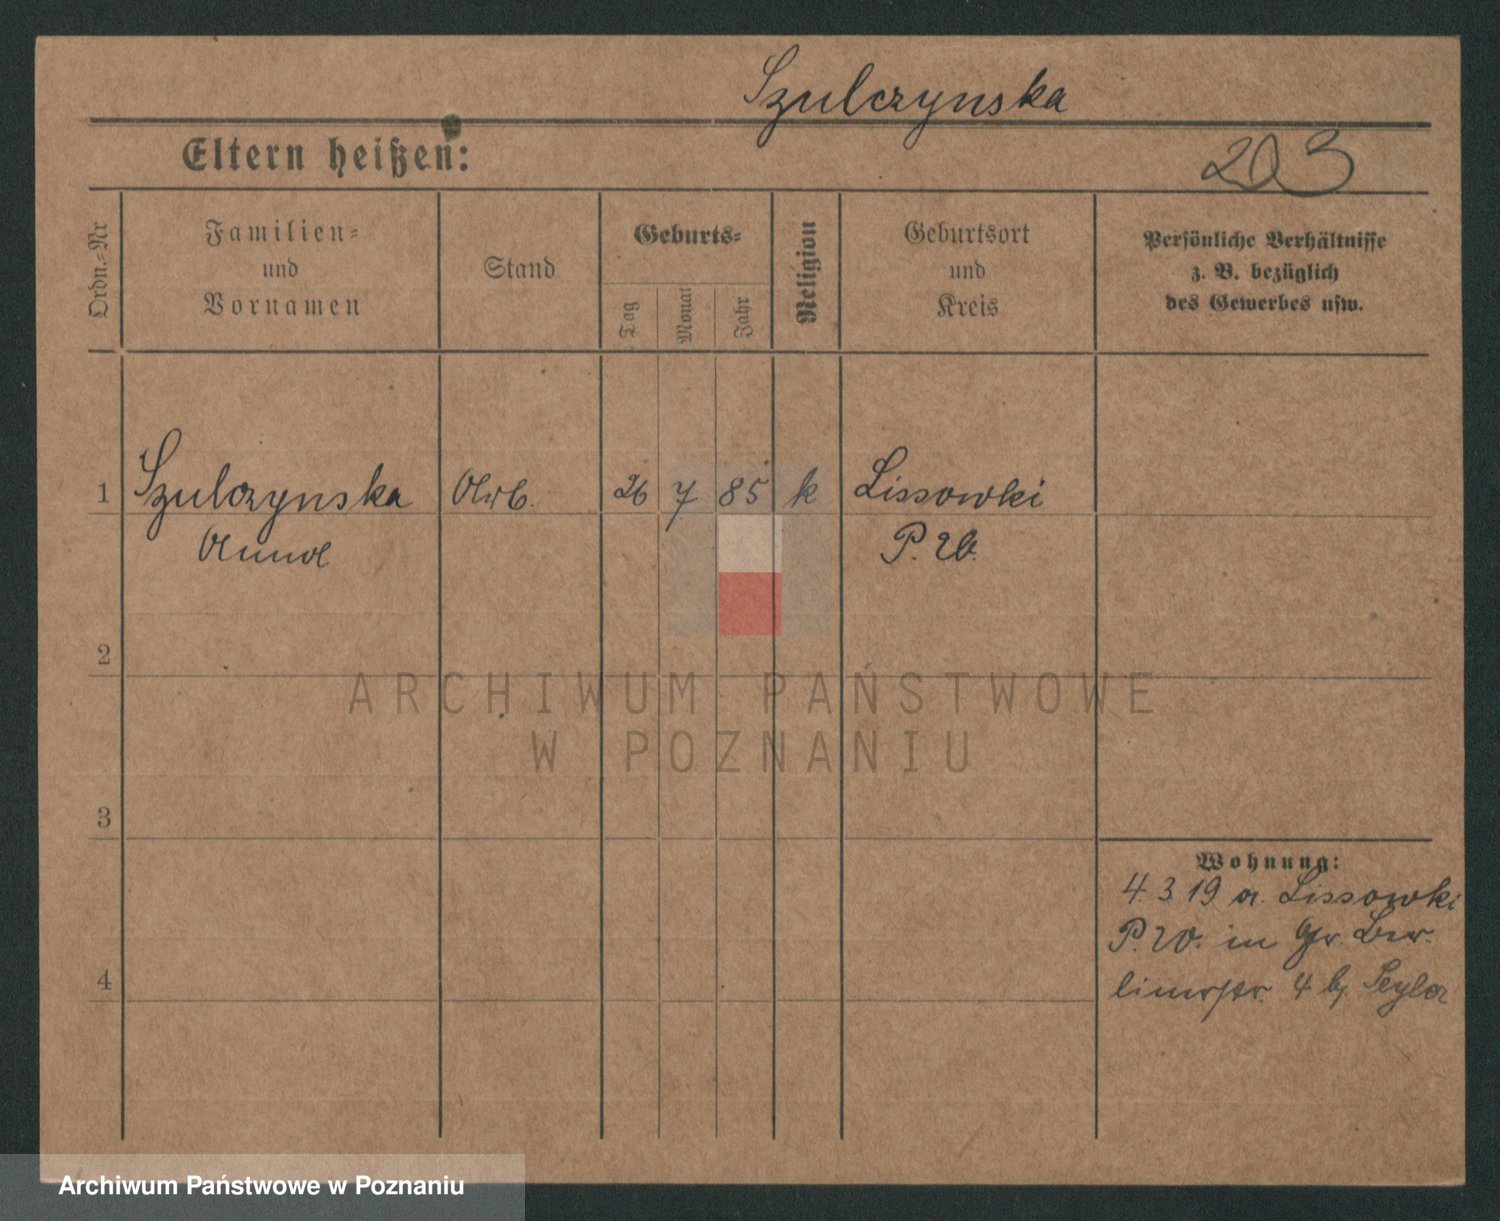 Szulczynska
Eltern heißen:
203
Ordn.-Nr
Familien-
und
Vornamen
Stand
Geburts-
Tag
Monat
Jahr
Religion
Geburtsort
und
Kreis
Persönliche Verhältnisse
z. B. bezüglich
des Gewerbes usw.
1 Szulczynska Arb. 26 7 85 k Lissowki
Anna P. W.
2
ARCHIWUM PAŃSTWOWE
W POZNANIU
3
Wohnung:
4. 3. 19 a. Lissowki
P. W. in Gr. Ber-
linerstr. 4 b.
4
Archiwum Państwowe w Poznaniu